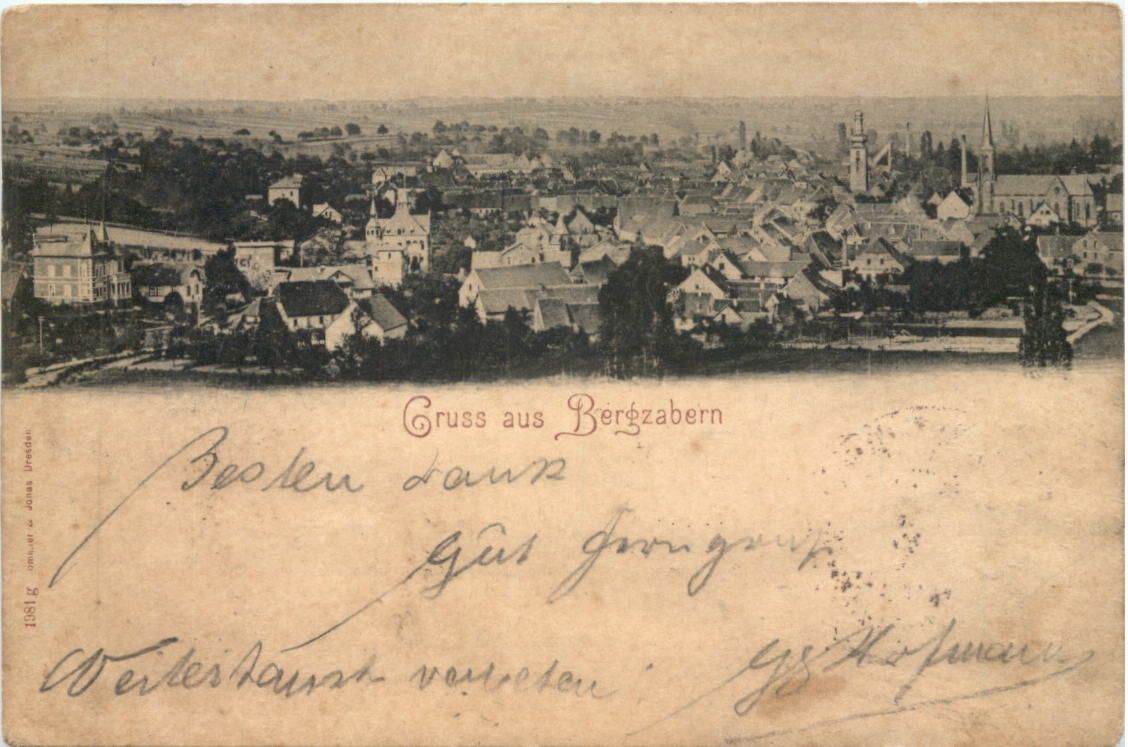 Gruss aus Bergzabern
Besten Dank
Gut Ferngruß
Weitertausch verbeten
Gg Hofmann
1981 g Jonas Dresden